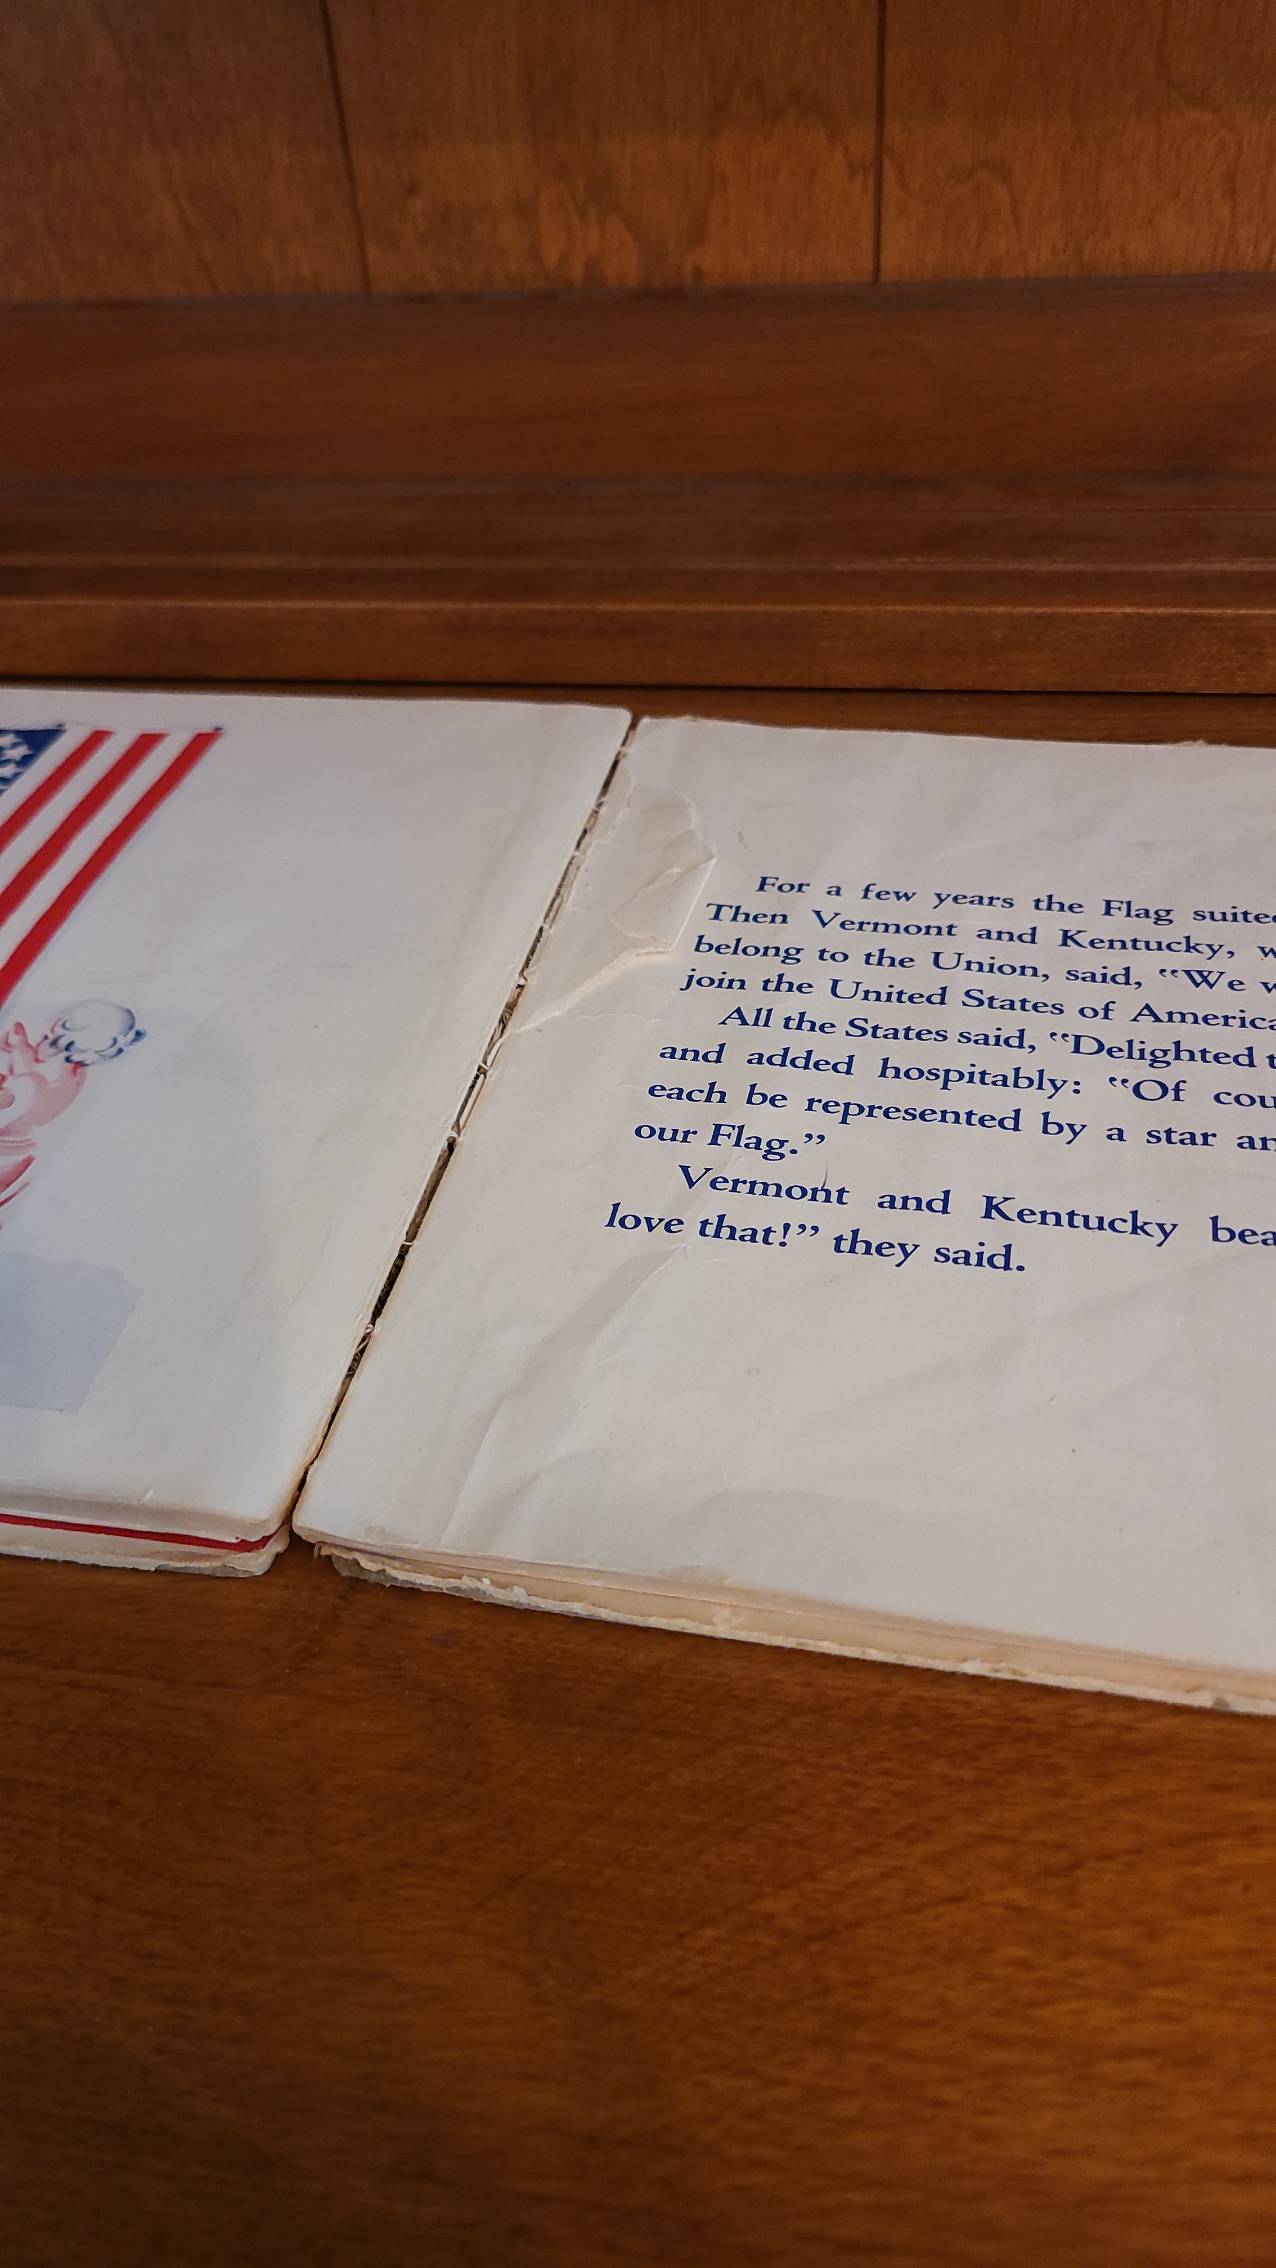 For a few years the Flag suite
Then Vermont and Kentucky, w
belong to the Union, said, “We w
join the United States of America
All the States said, “Delighted t
and added hospitably: “Of cou
each be represented by a star an
our Flag.”
Vermont and Kentucky bea
love that!” they said.